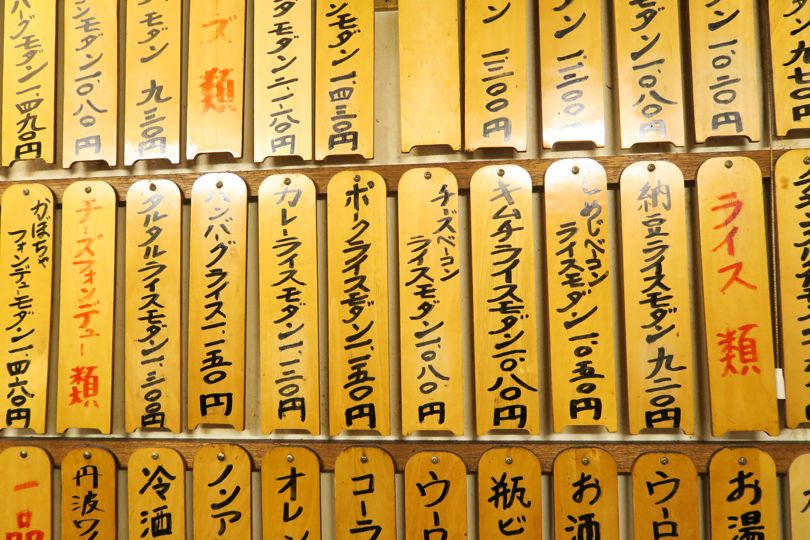 ダン九七〇円
ン一、〇二〇円
モダン一、〇八〇円
ン一、三〇〇円
ン一、三〇〇円
ンモダン一、四三〇円
モダン一、一六〇円
ズ類
モダン九三〇円
モダン一、〇八〇円
バーグモダン一、四九〇円
ライス類
納豆ライスモダン九二〇円
しめじベーコン
ライスモダン一、〇五〇円
キムチライスモダン一、〇八〇円
チーズベーコン
ライスモダン一、〇八〇円
ポークライスモダン一、一五〇円
カレーライスモダン一、二〇円
ハンバーグライス一、一五〇円
タルタルライスモダン一、三〇〇円
チーズフォンデュー類
かぼちゃ
フォンデューモダン一、四六〇円
お湯
ウーロ
お酒
瓶ビ
ウーロ
コーラ
オレン
ノンア
冷酒
丹波ワ
一品